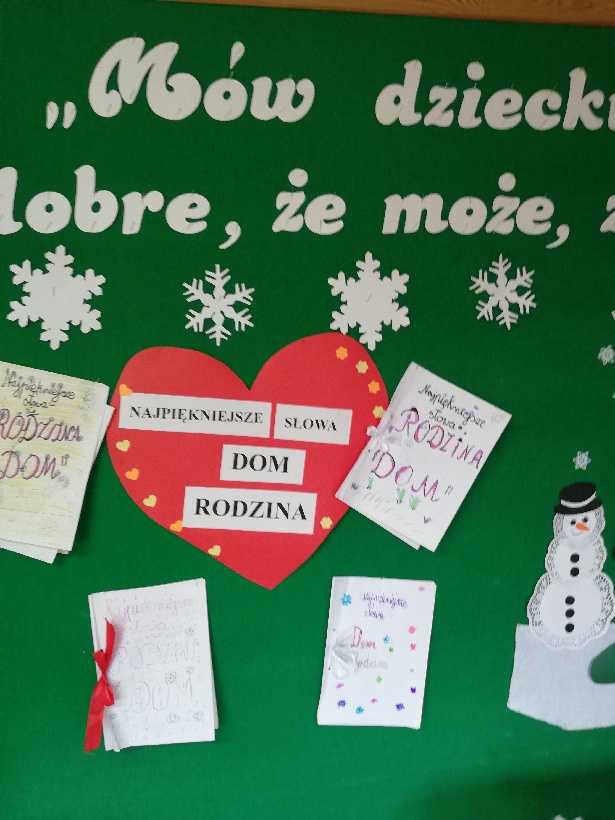 „Mów dziecku
dobre, że może, ż
NAJPIĘKNIEJSZE SŁOWA
DOM
RODZINA
Najpiękniejsze
słowa
RODZINA
DOM"
Najpiękniejsze
słowa:
"RODZINA
DOM"
Najpiękniejsze
słowa
RODZINA
DOM
Najpiękniejsze
słowa
Dom